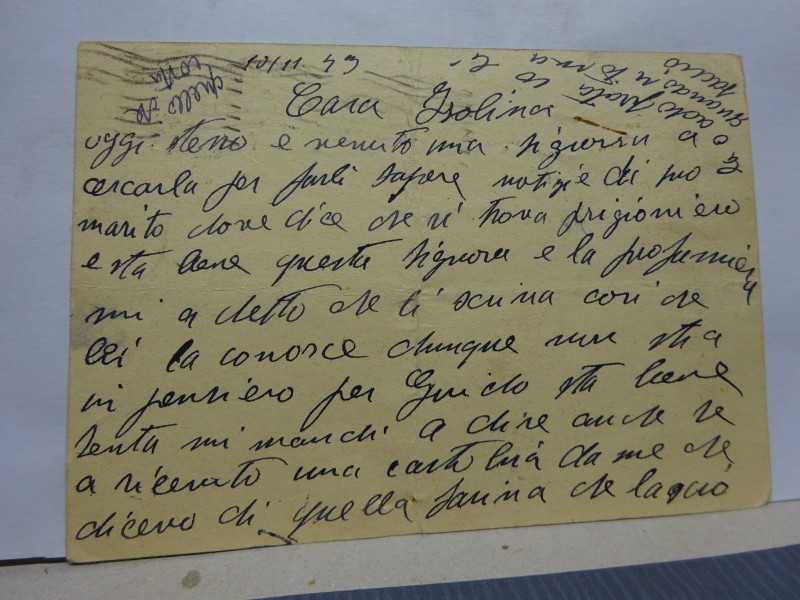 10/11 43
Cara Isolina
oggi stesso e venuto una signora a
cercarla per farli sapere notizie di suo
marito dove dice che si trova prigioniero
e sta bene questa signora e la profumiera
mi a detto che li scriva cosi che
lei la conosce dunque non stia
in pensiero per Guido sta bene
senta mi mandi a dire anche se
a ricevuto una cartolina da me che
dicevo di quella farina che lasciò
quello che